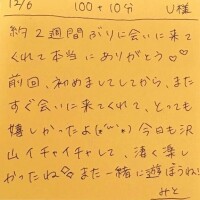 12/6 100+10分 U様
約2週間ぶりに会いに来て
くれて本当にありがとう♡♡
前回、初めましてしてから、また
すぐ会いに来てくれて、とっても
嬉しかったよ(*'ω'*) 今日も沢
山イチャイチャして、凄く楽し
かったね♡ また一緒に遊ぼうね!
みと